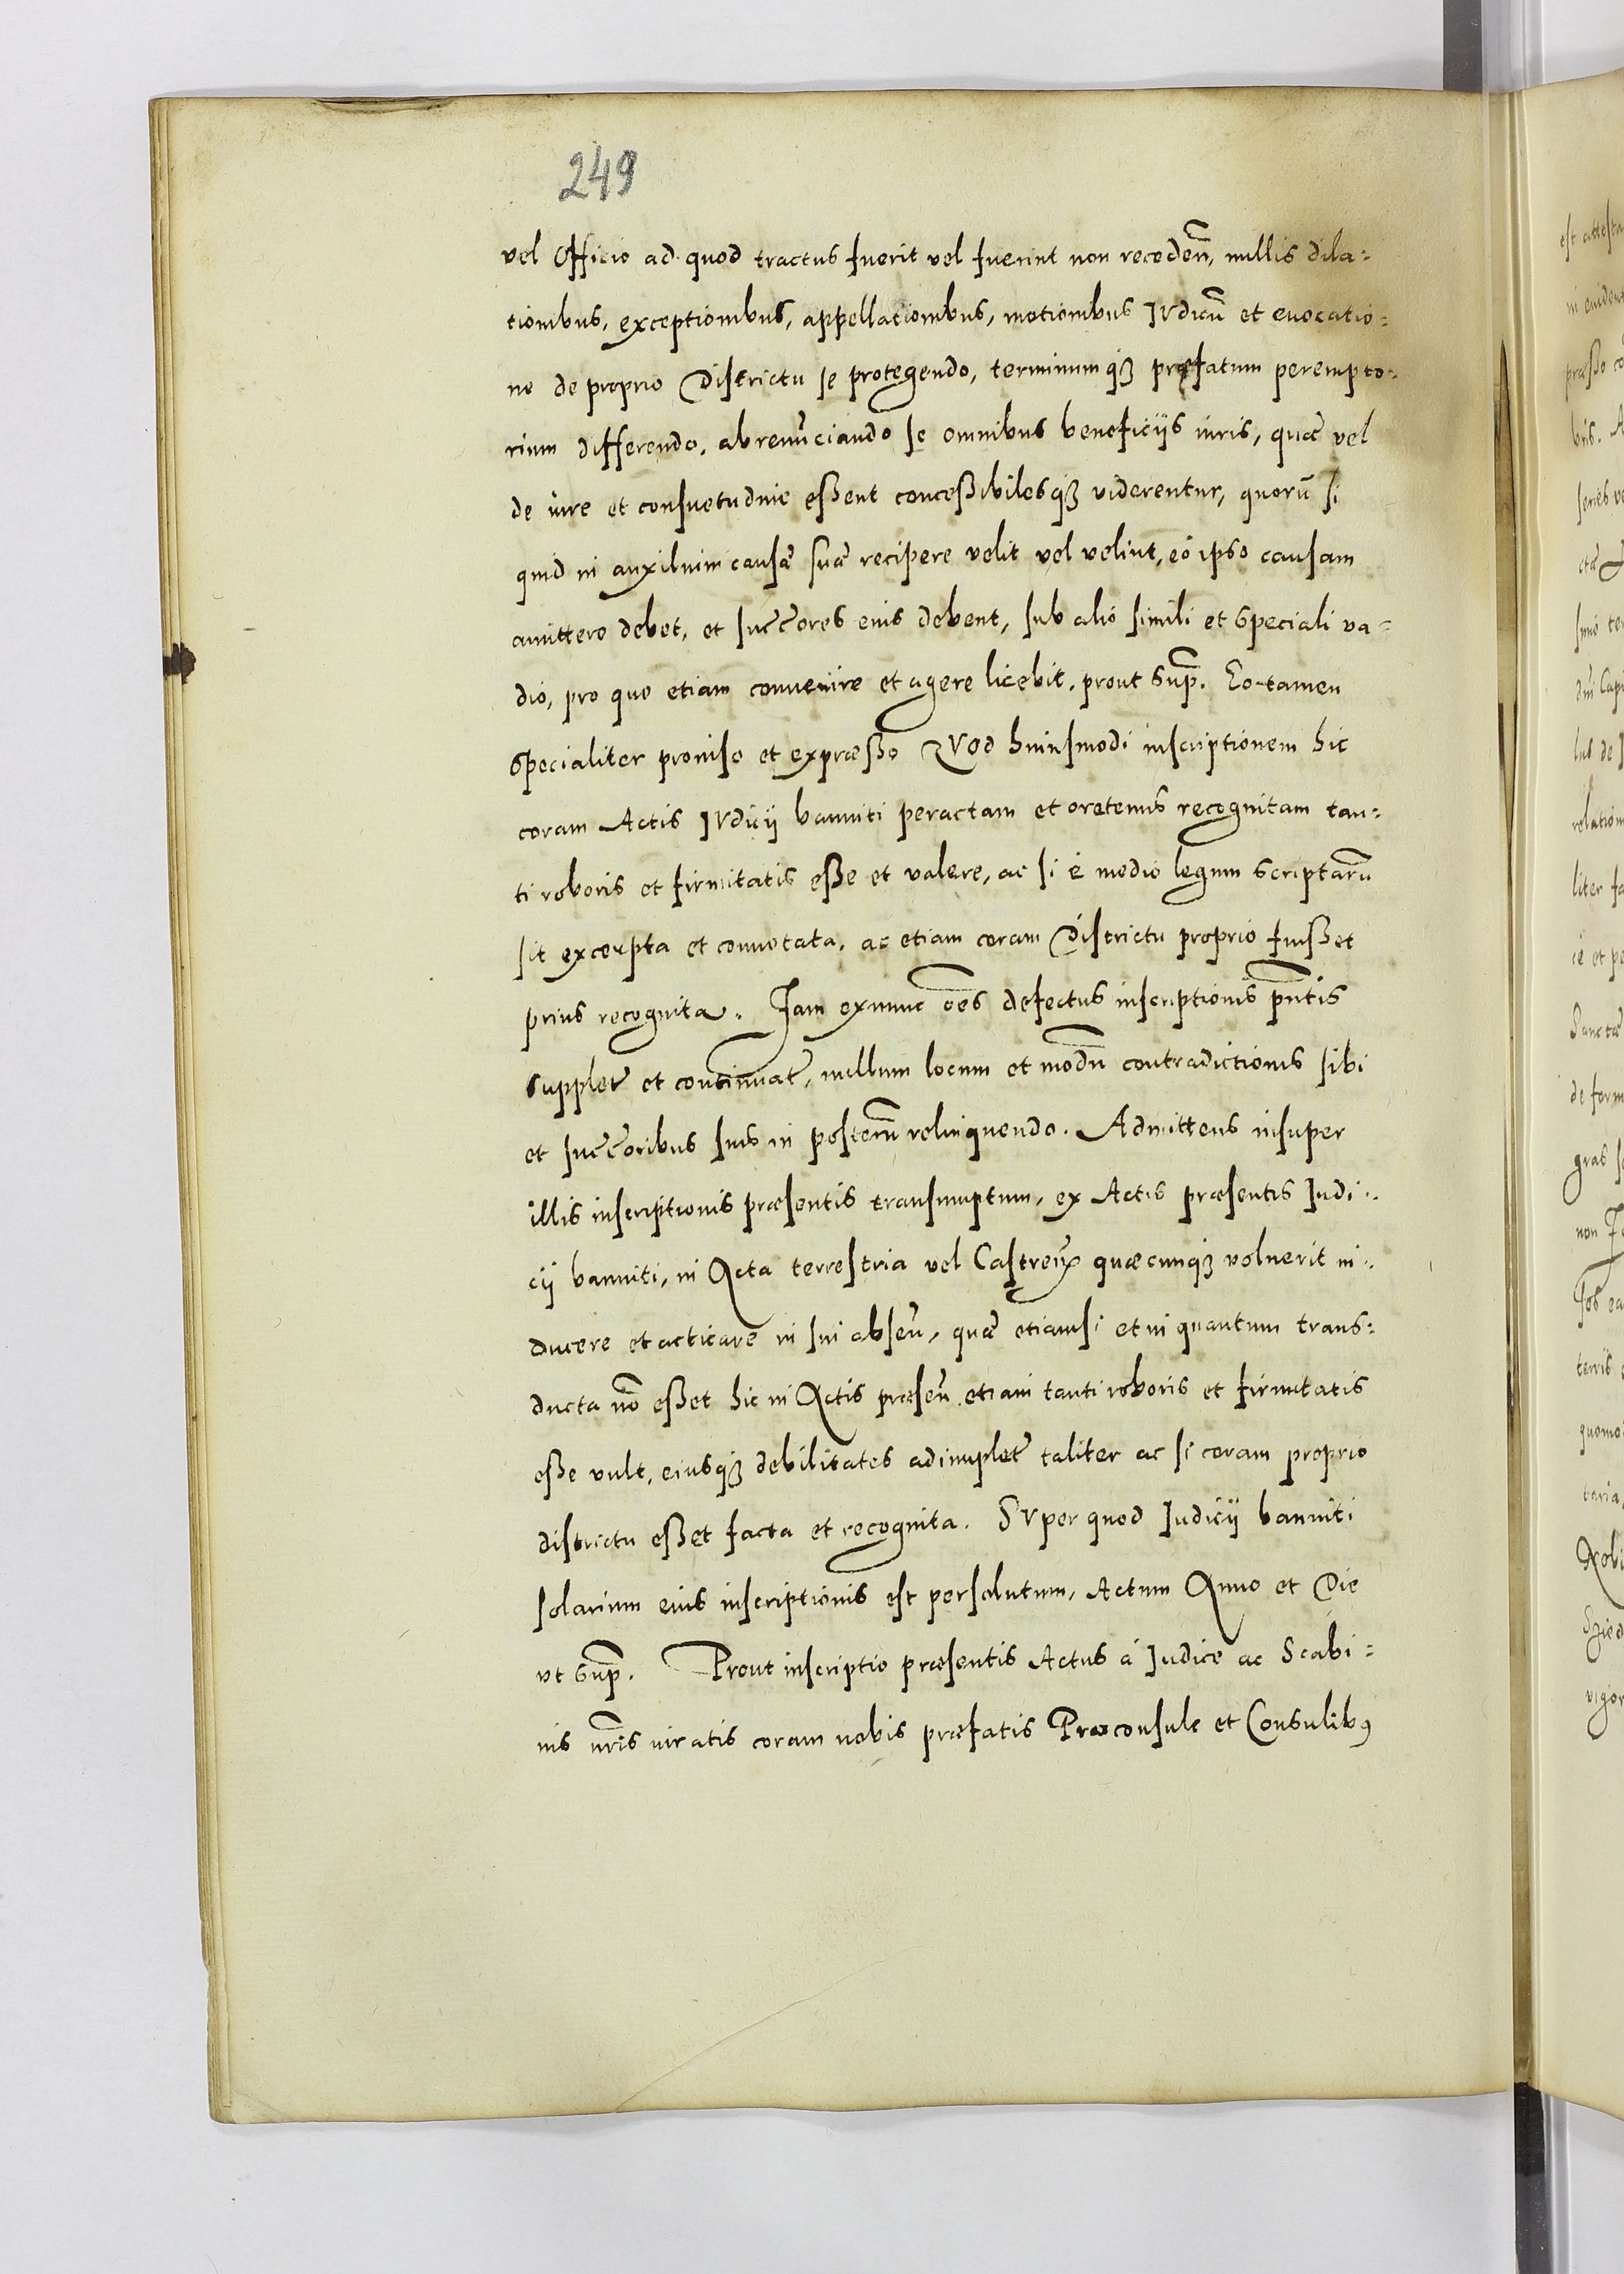 249
vel Officio ad quod tractus fuerit vel fuerint non receden̄, nullis dila=
tionibus, exceptionibus, appellationibus, motionibus IVdicū et euocatio=
ne de proprio Districtu se protegendo, terminumqꝫ præfatum perempto=
rium differendo, abrenūciando se omnibus beneficijs iuris, quæ vel
de iure et consuetudine eßent conceßibilesqꝫ viderentur, quorū si
quid in auxilium causæ suæ recipere velit vel velint, eó ipso causam
amittere debet, et succ̄ores eius debent, sub alió simili et speciali va=
dió, pro quo etiam conuenire et agere licebit, prout sup̄. Eo tamen
specialiter prouiso et expræsso QVod huiusmodi inscriptionem hic
coram Actis IVdicij banniti peractam et oretenus recognitam tan=
ti roboris et firmitatis eße et valere, ac si é medio legum scriptarū
sit excerpta et connotata, ac etiam coram Districtu proprio fuißet
prius recognita. Iam exnunc oēs defectus inscriptionis pn̄tis
supplet et continuat, nullum locum et modū contradictionis sibi
et succ̄oribus suis in posterū relinquendo. Admittens insuper
illis inscriptionis præsentis transsumptum, ex Actis præsentis Iudi=
cij banniti, in Acta terrestria vel Castren̄ quæcunqꝫ voluerit in=
ducere et acticare in sui absen̄, quæ etiamsi et in quantum trans=
ducta nō eßet hic in Actis præsen̄ etiam tanti roboris et firmitatis
eße vult, eiusqꝫ debilitates adimplet taliter ac si coram proprio
districtu eßet facta et recognita. SVper quod Iudicij banniti
solarium eius inscriptionis est persolutum, Actum Anno et Die
vt sup̄. Prout inscriptio præsentis Actus á Iudice ac Scabi=
nis nr̄is iuratis coram nobis præfatis Præconsule et Consulibꝰ